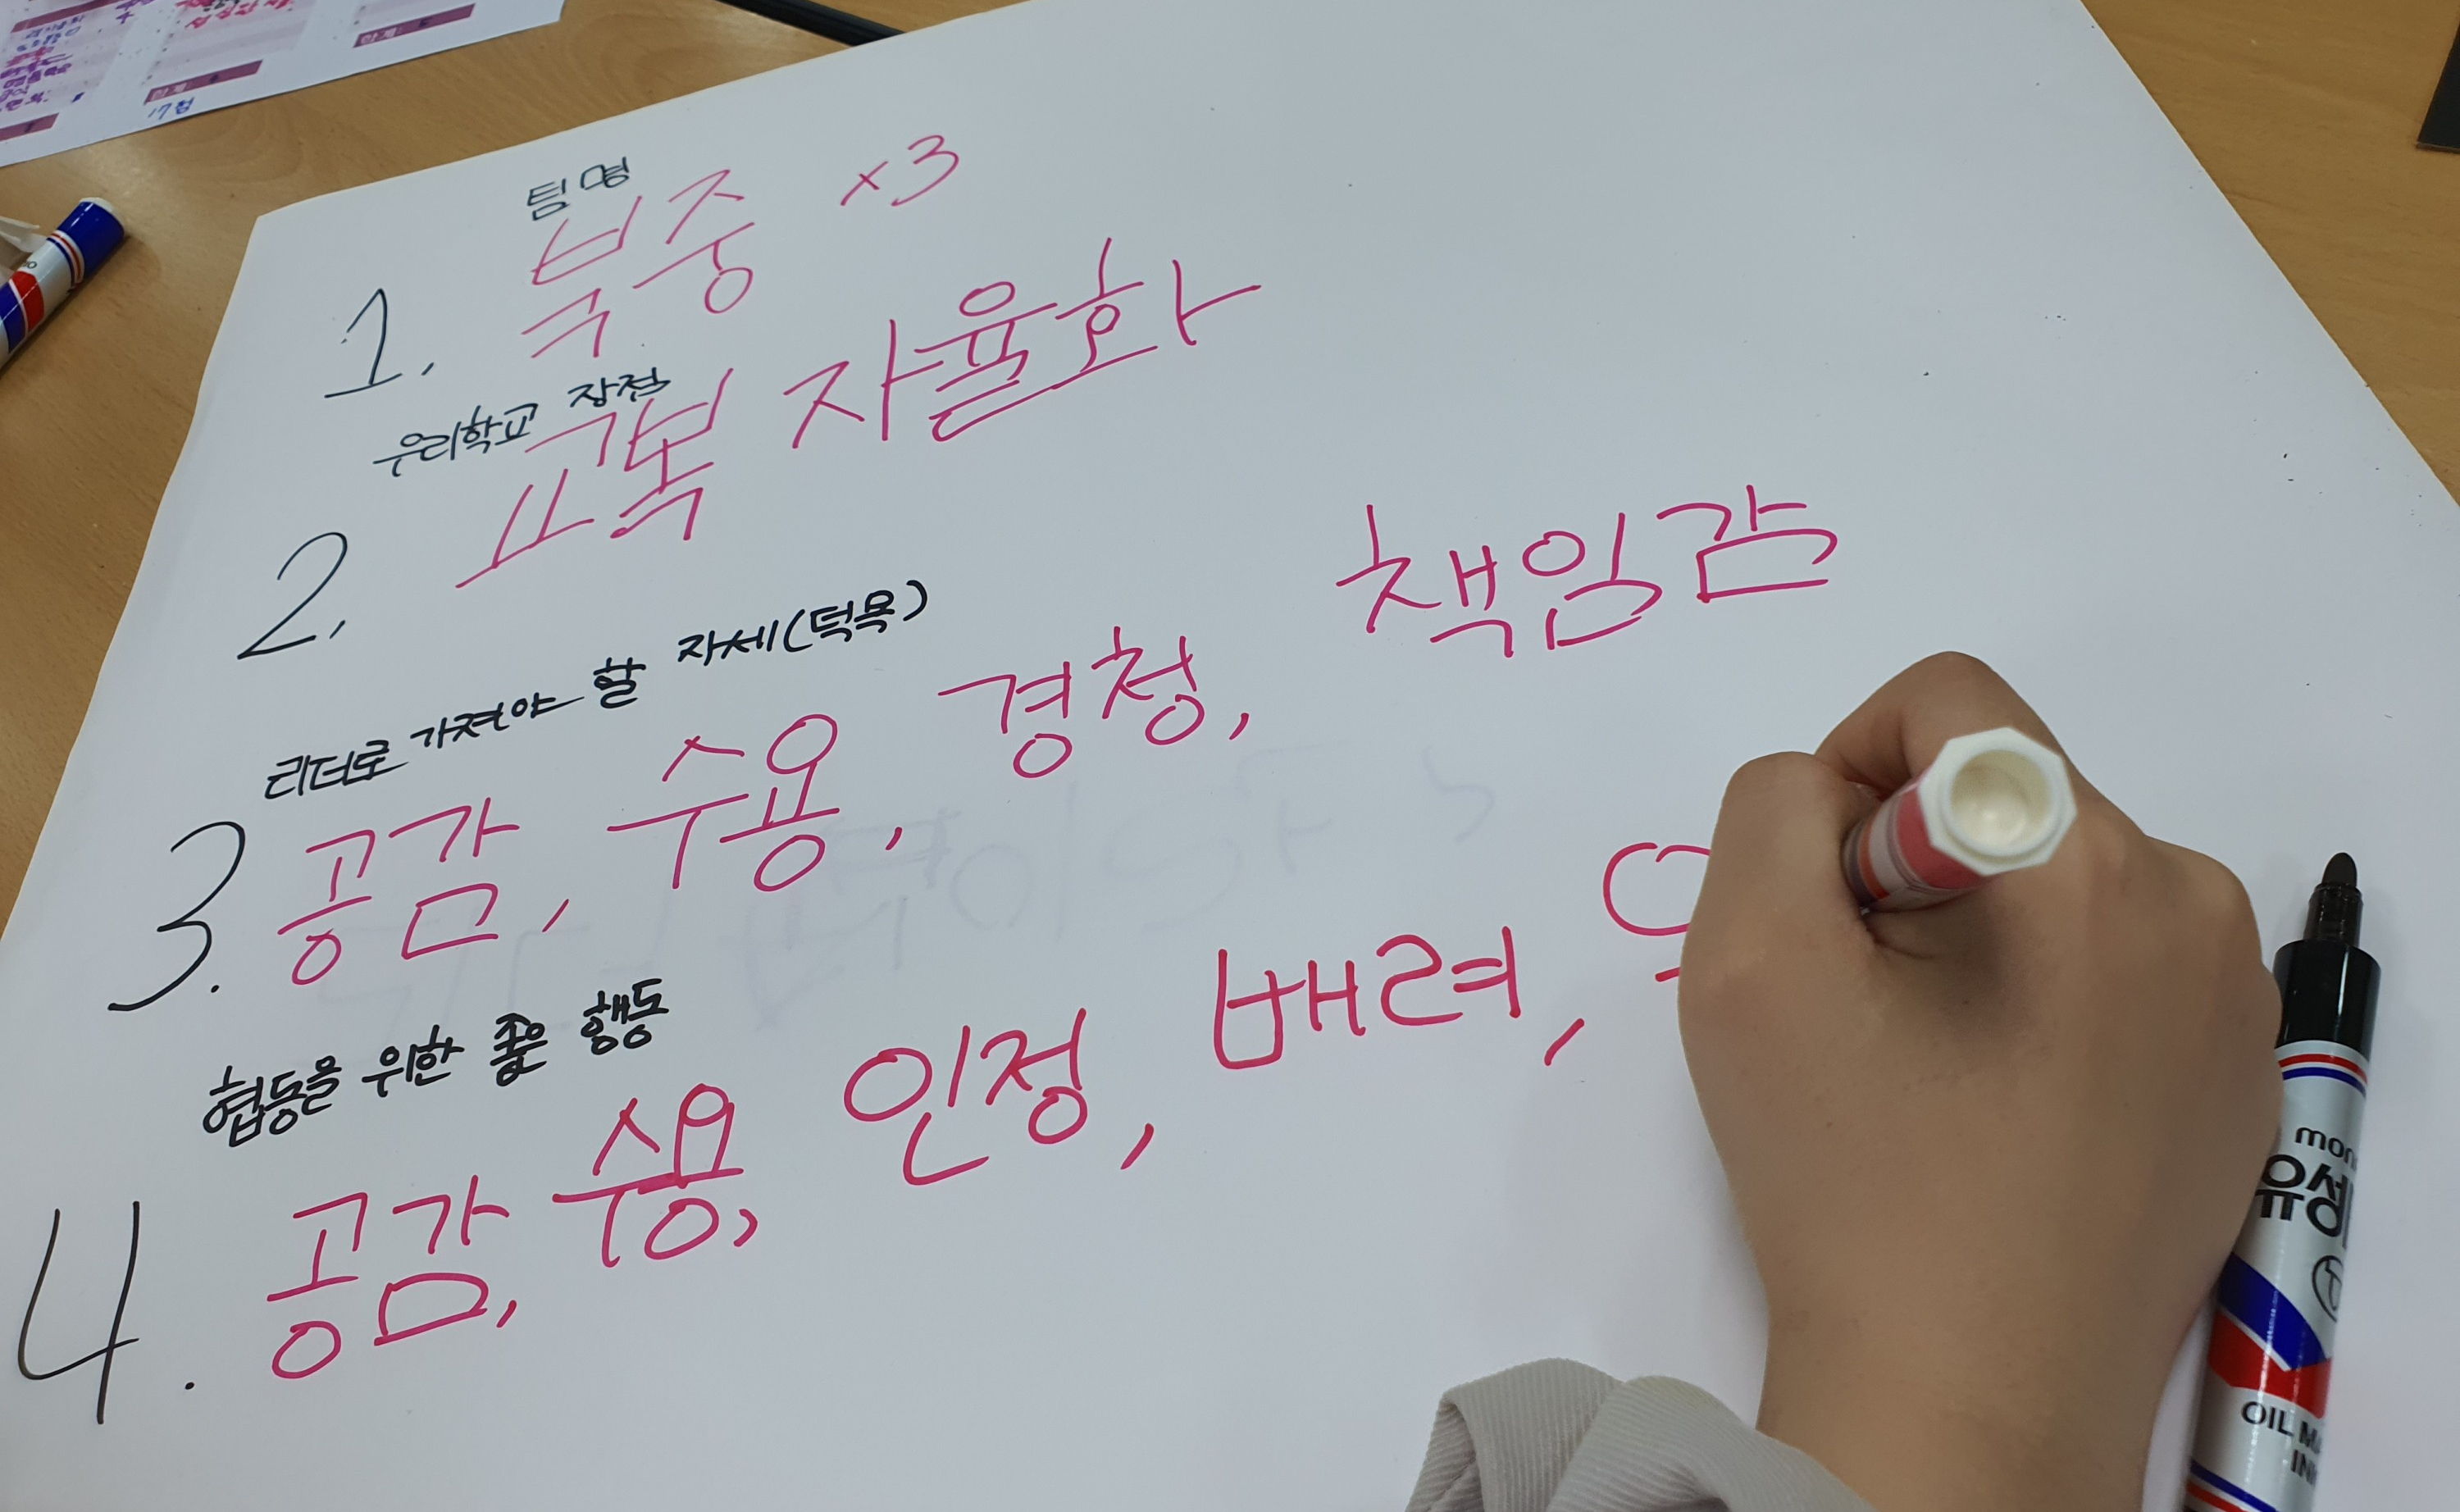 팀명
1. 북중 ×3
우리학교 장점
2. 교복 자율화
리더로 가져야 할 자세(덕목)
3. 공감, 수용, 경청, 책임감
협동을 위한 좋은 행동
4. 공감, 수용, 인정, 배려,
유성
OIL
17점